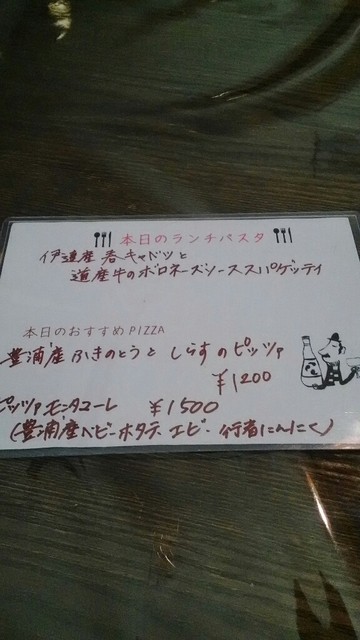 本日のランチパスタ
伊達産 春キャベツと
道産牛のボロネーズソーススパゲッティ
本日のおすすめPIZZA
豊浦産 ふきのとうと しらすのピッツァ
¥1200
ピッツァモンタニョーレ ¥1500
(豊浦産ベビーホタテ エビ・行者にんにく)